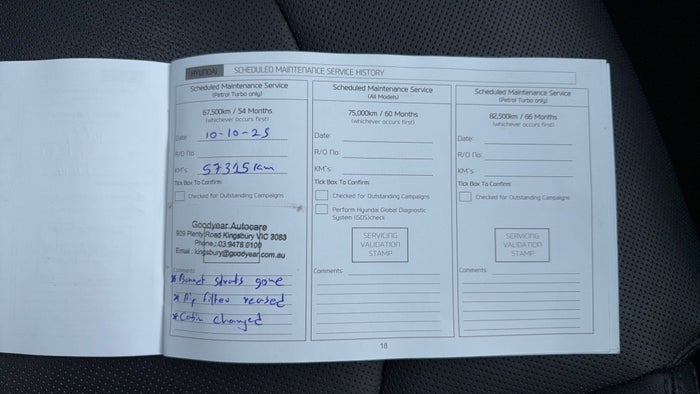 HYUNDAI SCHEDULED MAINTENANCE SERVICE HISTORY
Scheduled Maintenance Service
(Petrol Turbo only)
67,500km / 54 Months
(whichever occurs first)
Date: 10-10-25
R/O No:
KM's: 57315km
Tick Box To Confirm:
Checked for Outstanding Campaigns
Goodyear Autocare
909 Plenty Road Kingsbury VIC 3083
Phone: 03 9478 0100
Email: kingsbury@goodyear.com.au
Comments:
* Bonnet struts gone
* Air filter reused
* Cabin changed
Scheduled Maintenance Service
(All Models)
75,000km / 60 Months
(whichever occurs first)
Date:
R/O No:
KM's:
Tick Box To Confirm:
Checked for Outstanding Campaigns
Perform Hyundai Global Diagnostic
System (GDS)check
SERVICING
VALIDATION
STAMP
Comments:
Scheduled Maintenance Service
(Petrol Turbo only)
82,500km / 66 Months
(whichever occurs first)
Date:
R/O No:
KM's:
Tick Box To Confirm:
Checked for Outstanding Campaigns
SERVICING
VALIDATION
STAMP
Comments:
18